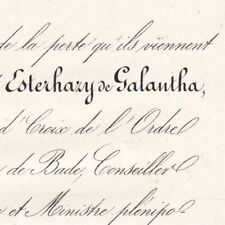 de la perte qu'ils viennent
Esterhazy de Galantha,
d'Croix de l'Ordre
de Bade, Conseiller
e et Ministre plénipo